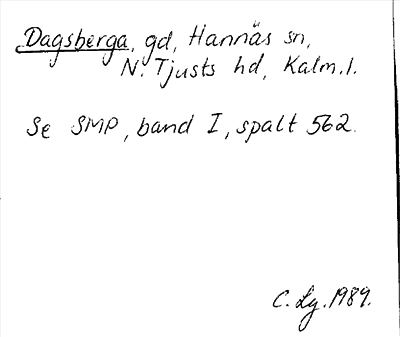 Dagsberga, gd, Hannäs sn,
N. Tjusts hd, Kalm. l.
Se SMP, band I, spalt 562.
C. Lg. 1989.